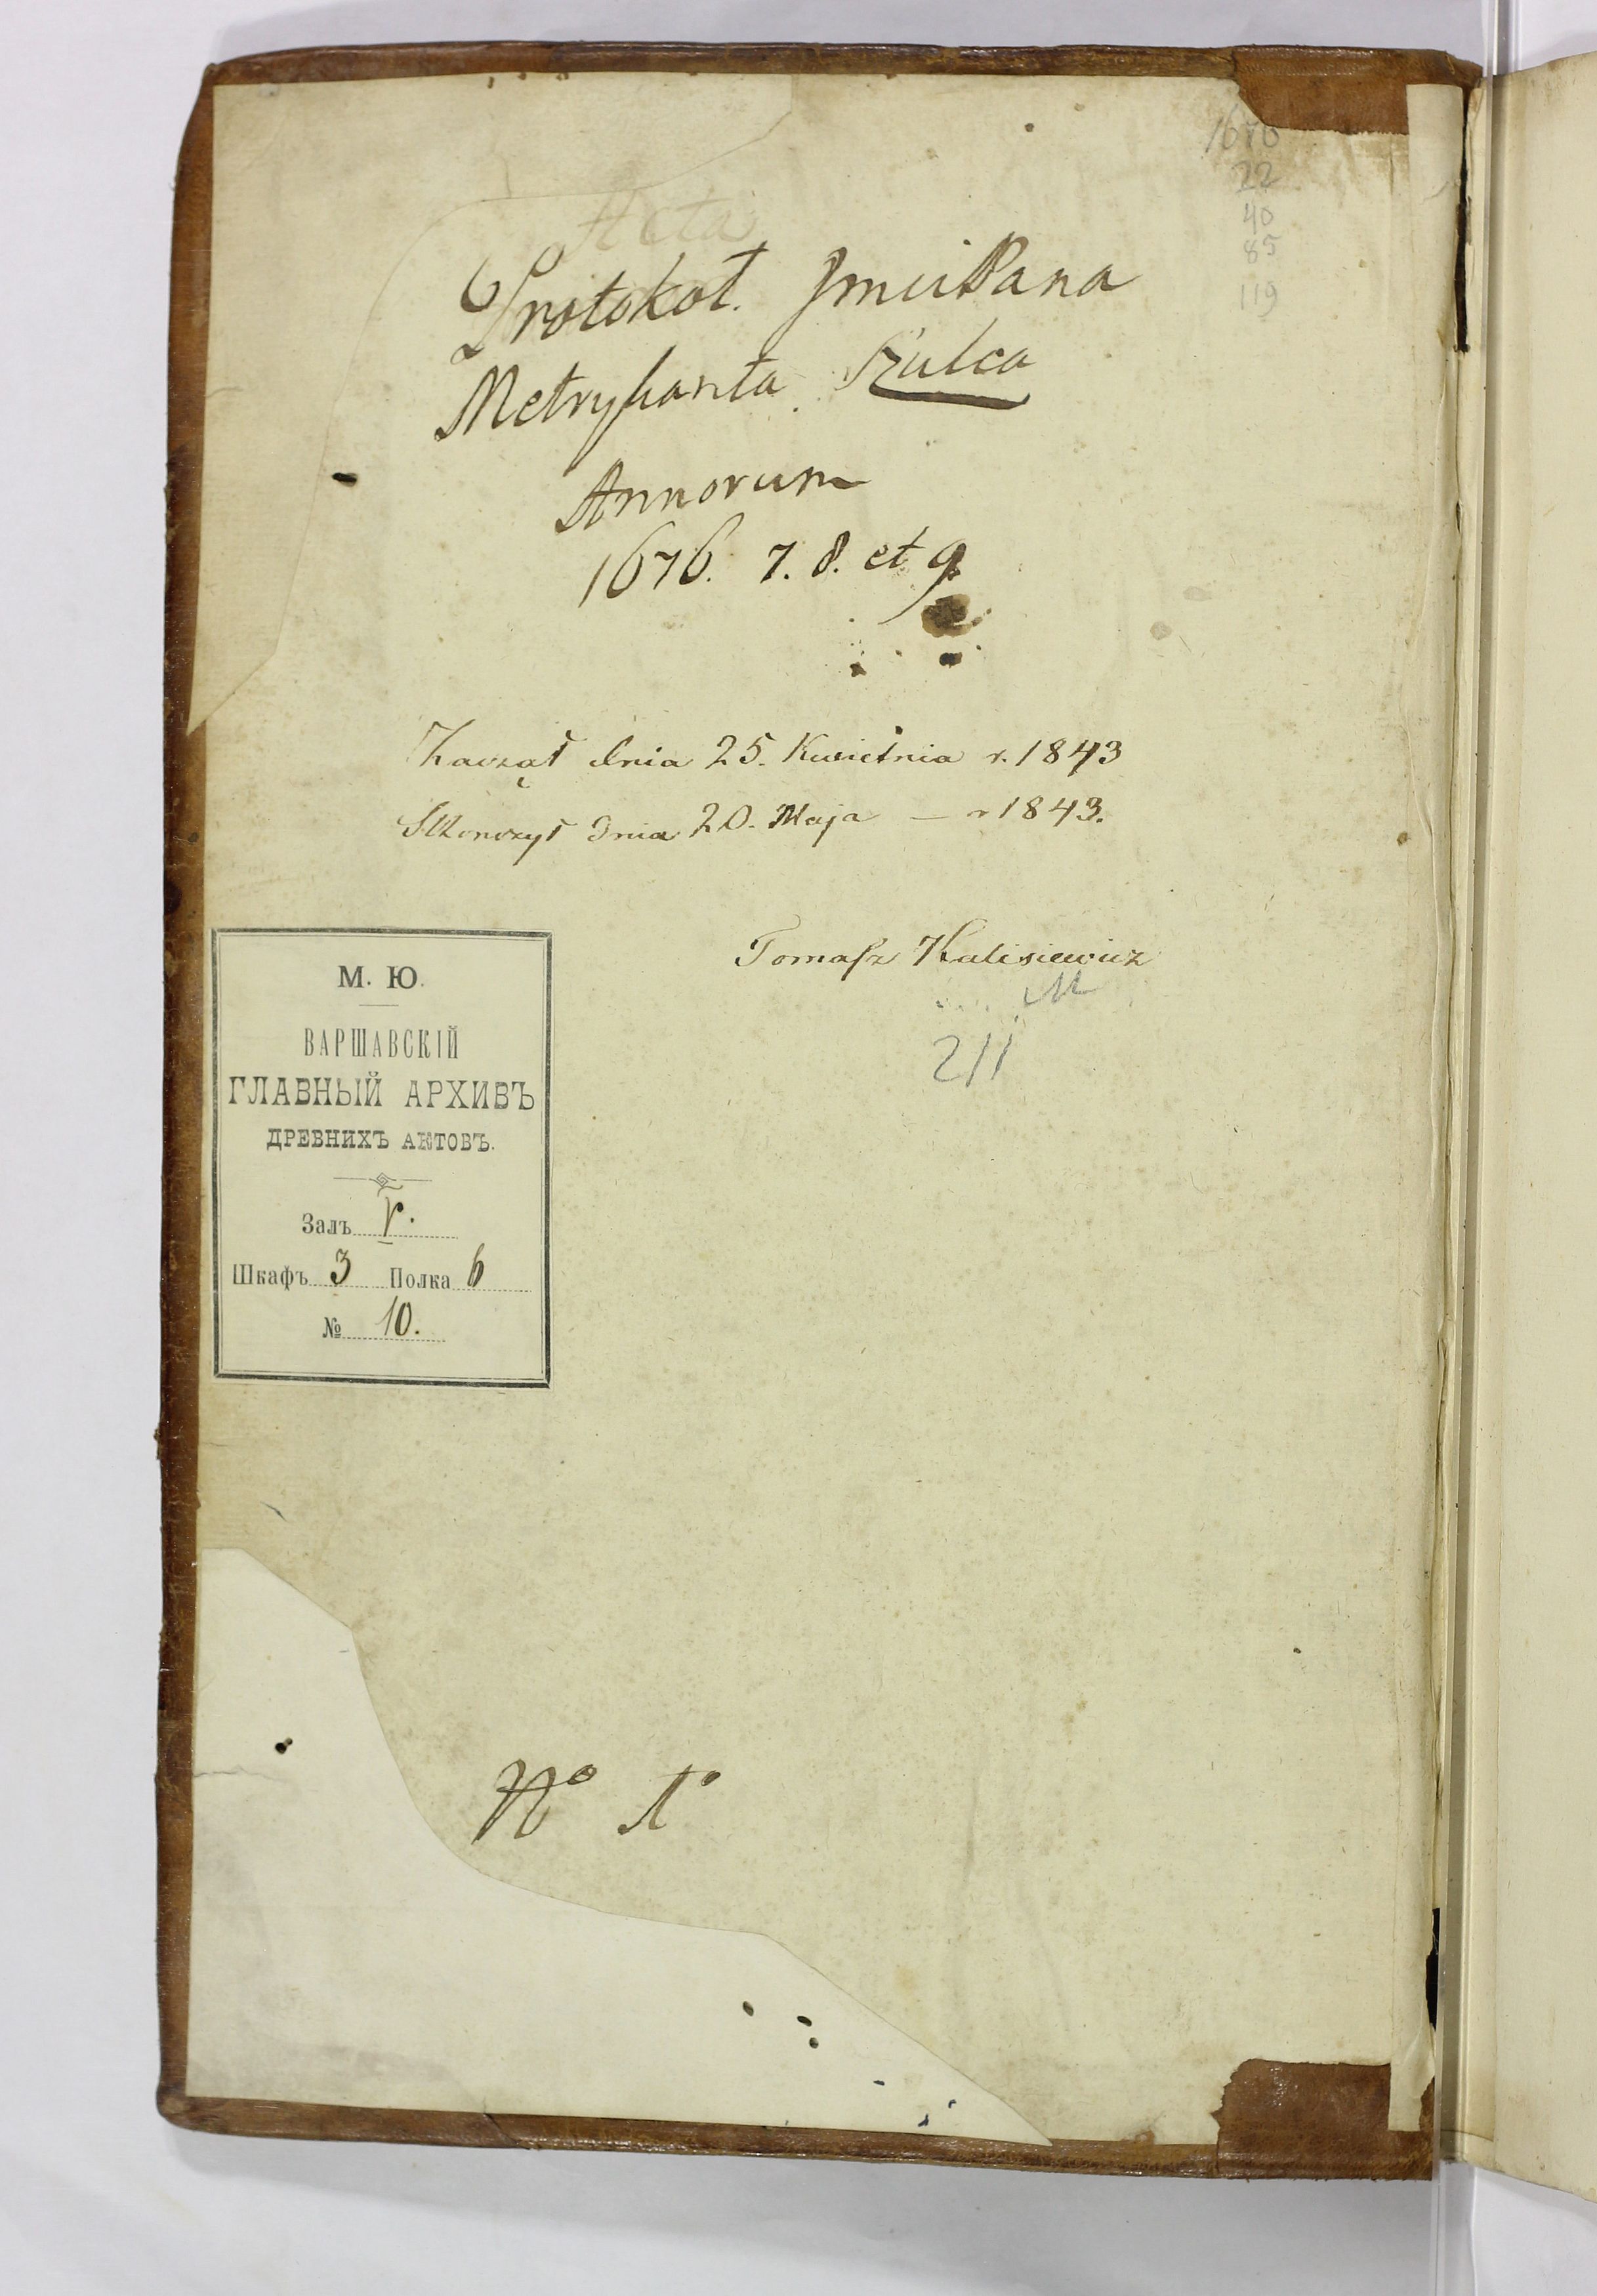 1676
22
40
85
119
Acta
Protokoł. JmciPana
Metrykanta Szulca
Annorum
1676. 7. 8. et 9
Zaczął dnia 25. Kwietnia r. 1843
Skończył dnia 20. Maja — r 1843.
Tomasz Kalisiewicz
211
М. Ю.
ВАРШАВСКІЙ
ГЛАВНЫЙ АРХИВЪ
ДРЕВНИХЪ АКТОВЪ.
Залъ V.
Шкафъ 3 Полка 6
№ 10.
Nº 1º